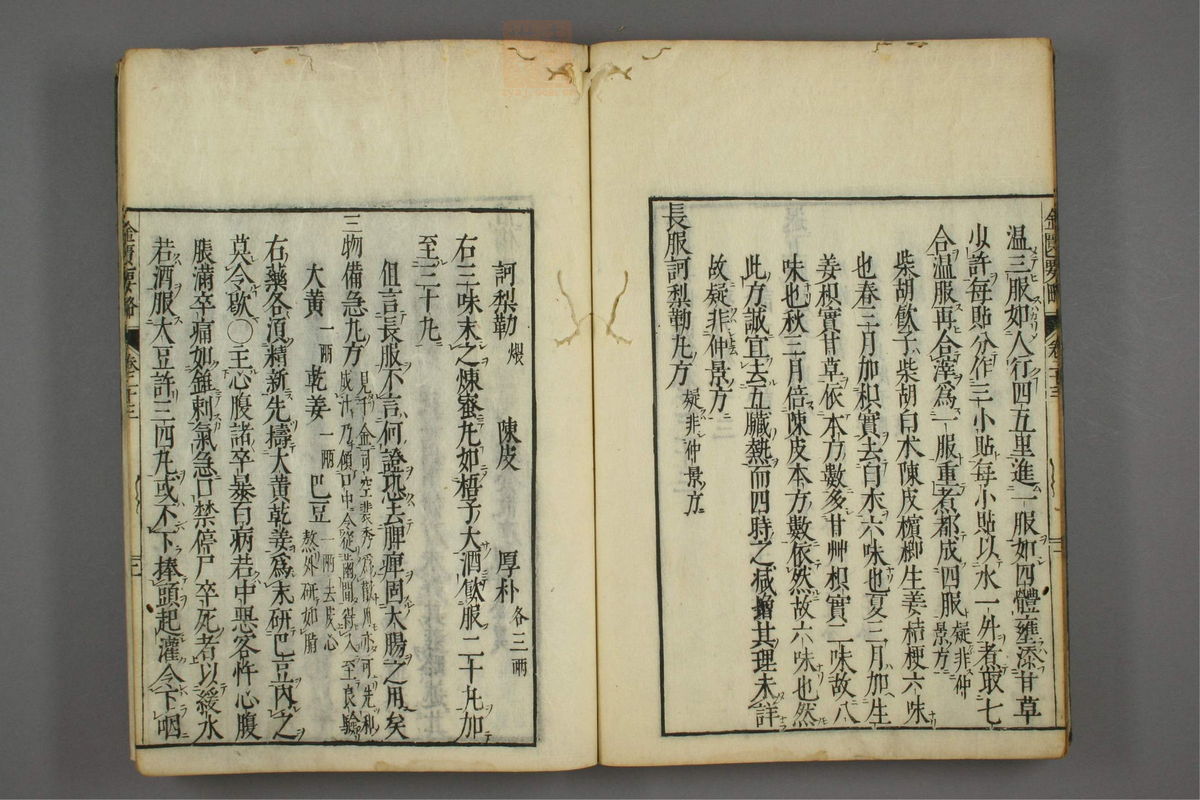 温三服如人行四五里進一服如四體壅添甘草
少許每貼分作三小貼每小貼以水一升煮取七
合温服再合滓為一服重煮都成四服疑非仲景方
柴胡飲子柴胡白朮陳皮檳榔生姜桔梗六味
也春三月加枳實去白朮六味也夏三月加生
姜枳實甘草依本方數多甘艸枳實二味故八
味也秋三月倍陳皮本方數依然故六味也然
此方誠宜去五臟熱而四時之減增其理未詳
故疑非仲景方
長服訶梨勒丸方疑非仲景方
訶梨勒煨 陳皮 厚朴各三兩
右三味末之煉蜜丸如梧子大酒飲服二十丸加
至三十丸
但言長服不言何證恐去脾痺固大腸之用矣
三物備急丸方見千金司空裴秀為散用亦可先和成汁乃傾口中令從齒間得入至良驗
大黃一兩 乾姜一兩 巴豆一兩去皮心熬外研如脂
右藥各須精新先擣大黃乾姜為末研巴豆內之
莫令歇〇主心腹諸卒暴百病若中惡客忤心腹
脹滿卒痛如錐刺氣急口禁停尸卒死者以緩水
若酒服大豆許三四丸或不下捧頭起灌令下咽
金匱要略
卷二十三
金匱要略
卷二十三
三